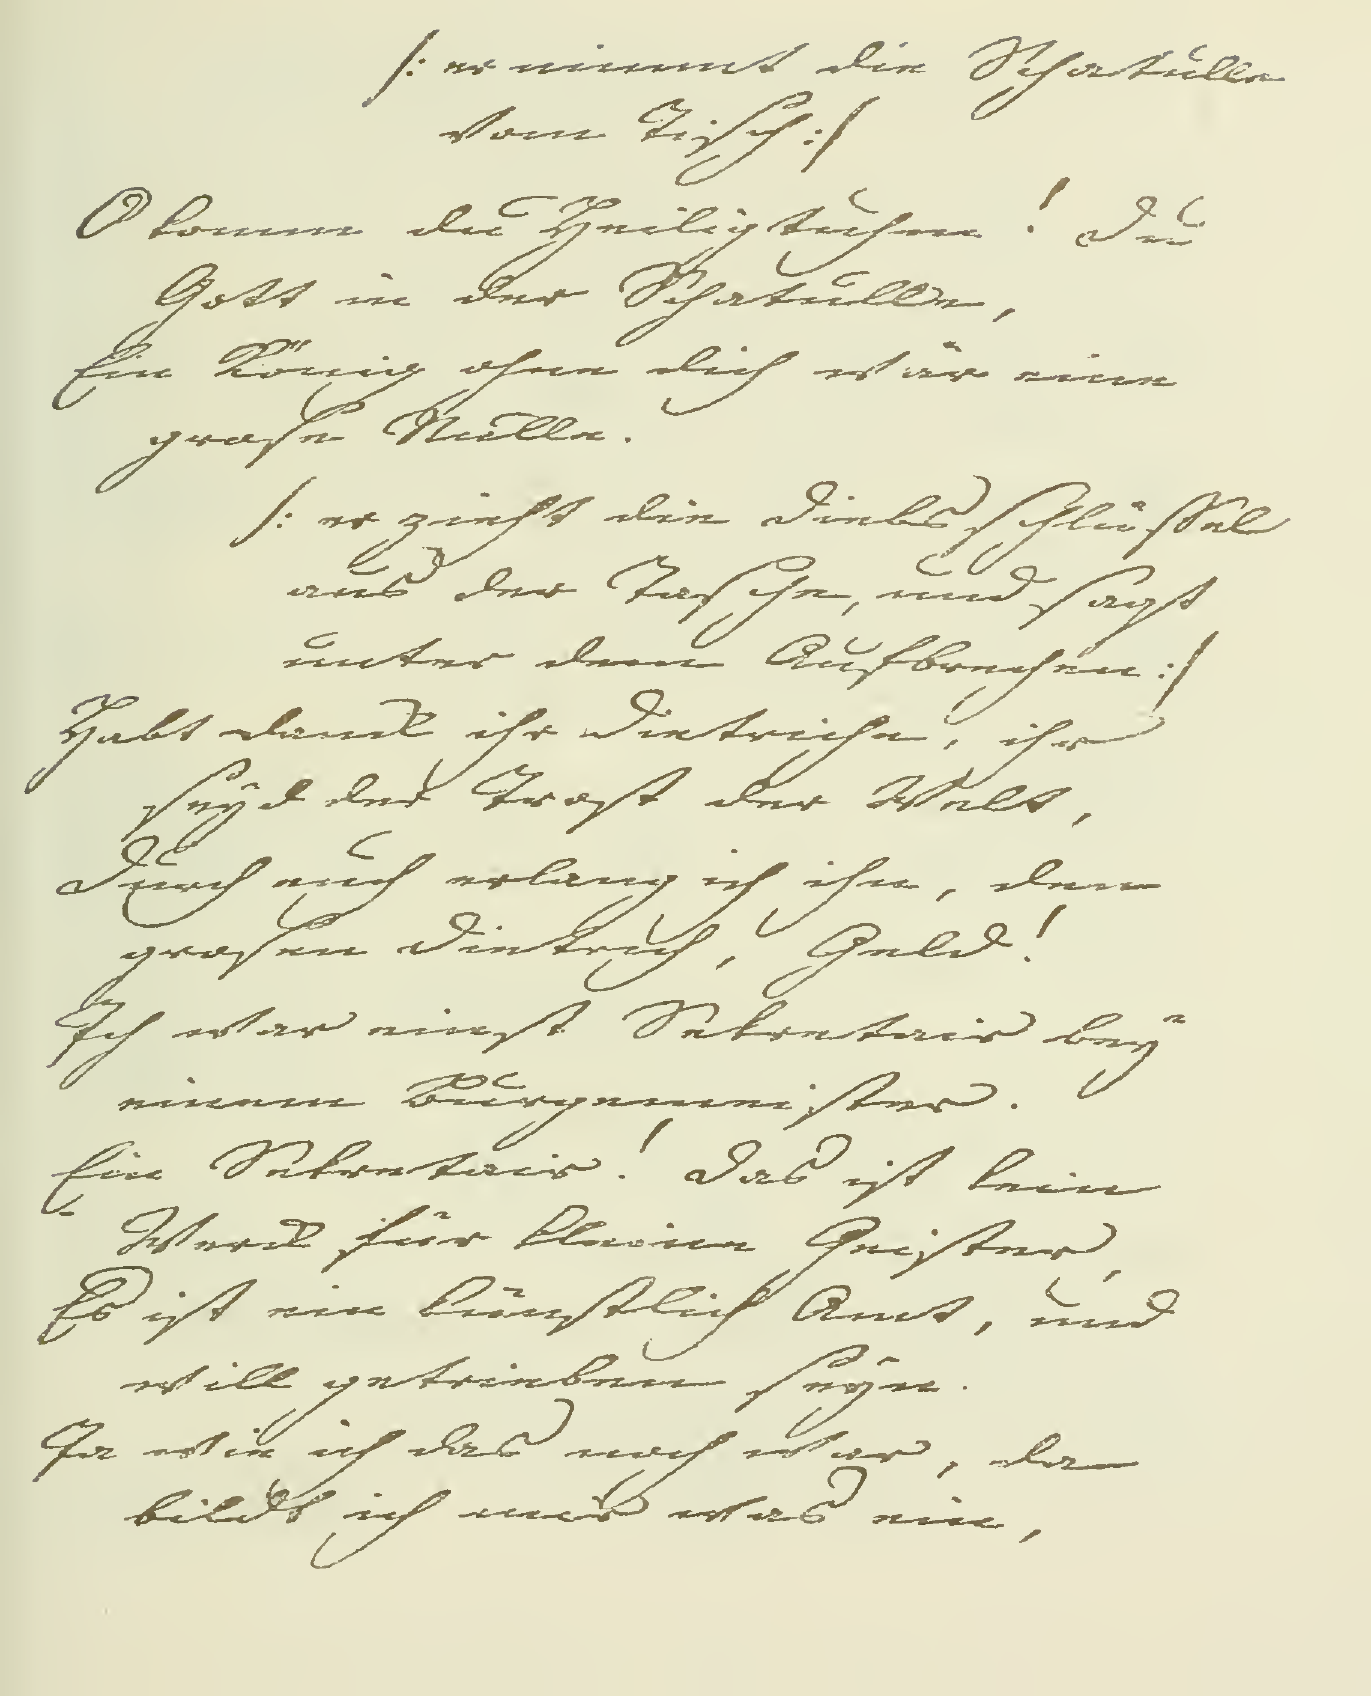 /: er nimmt die Schatulle
vom Tisch :/
O komm du Heiligthum! Du
Gott in der Schatulle,
Ein König ohne dich wär eine
grose Nulle.
/: er zieht die Diebsschlüssel
aus der Tasche, und sagt
unter dem Aufbrechen :/
Habt danck ihr Dietriche, ihr
seyd der Trost der Welt,
Durch euch erlang ich ihn, den
grosen Dietrich, Geld!
Ich war einst Sekretair bey
einem Bürgemeister.
Ein Sekretair! Das ist kein
Werck für kleine Geister,
Es ist ein künstlich Amt, und
will getrieben seyn.
Ja wie ich das noch war, da
bildt ich mir was ein,